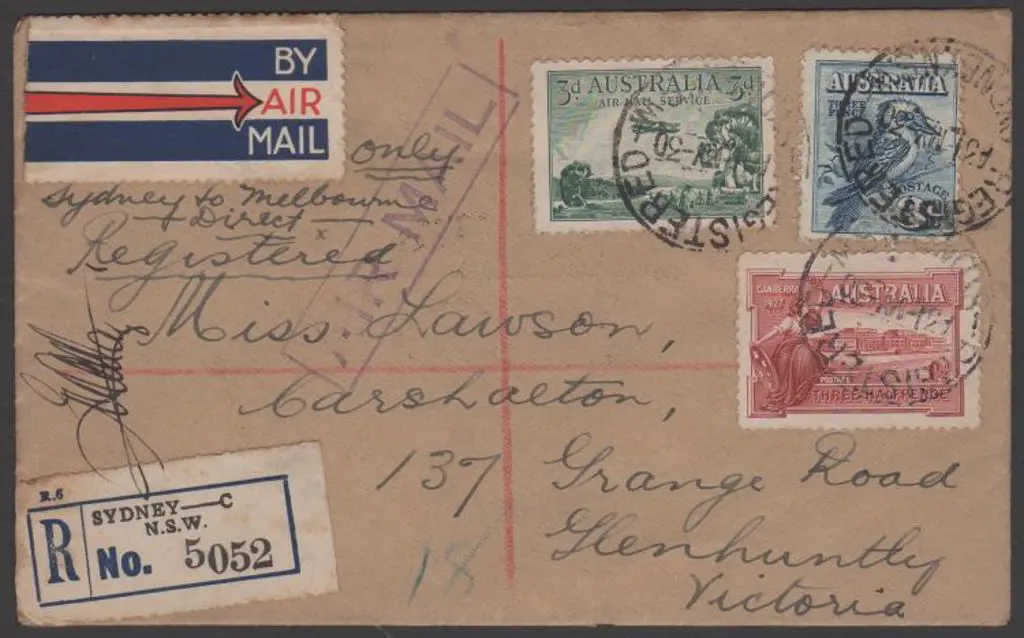 BY
AIR
MAIL
only
Sydney to Melbourne
+ Direct
Registered
AIR MAIL
3d AUSTRALIA 3d
AIR MAIL SERVICE
AUSTRALIA
THREE
POSTAGE
REGISTERED
REGISTERED
CANBERRA
1927
AUSTRALIA
POSTAGE
THREE-HALFPENCE
Miss. Lawson,
Carshalton,
137 Grange Road
Glenhuntly
Victoria
18
R.6
SYDNEY—C
N.S.W.
R No. 5052